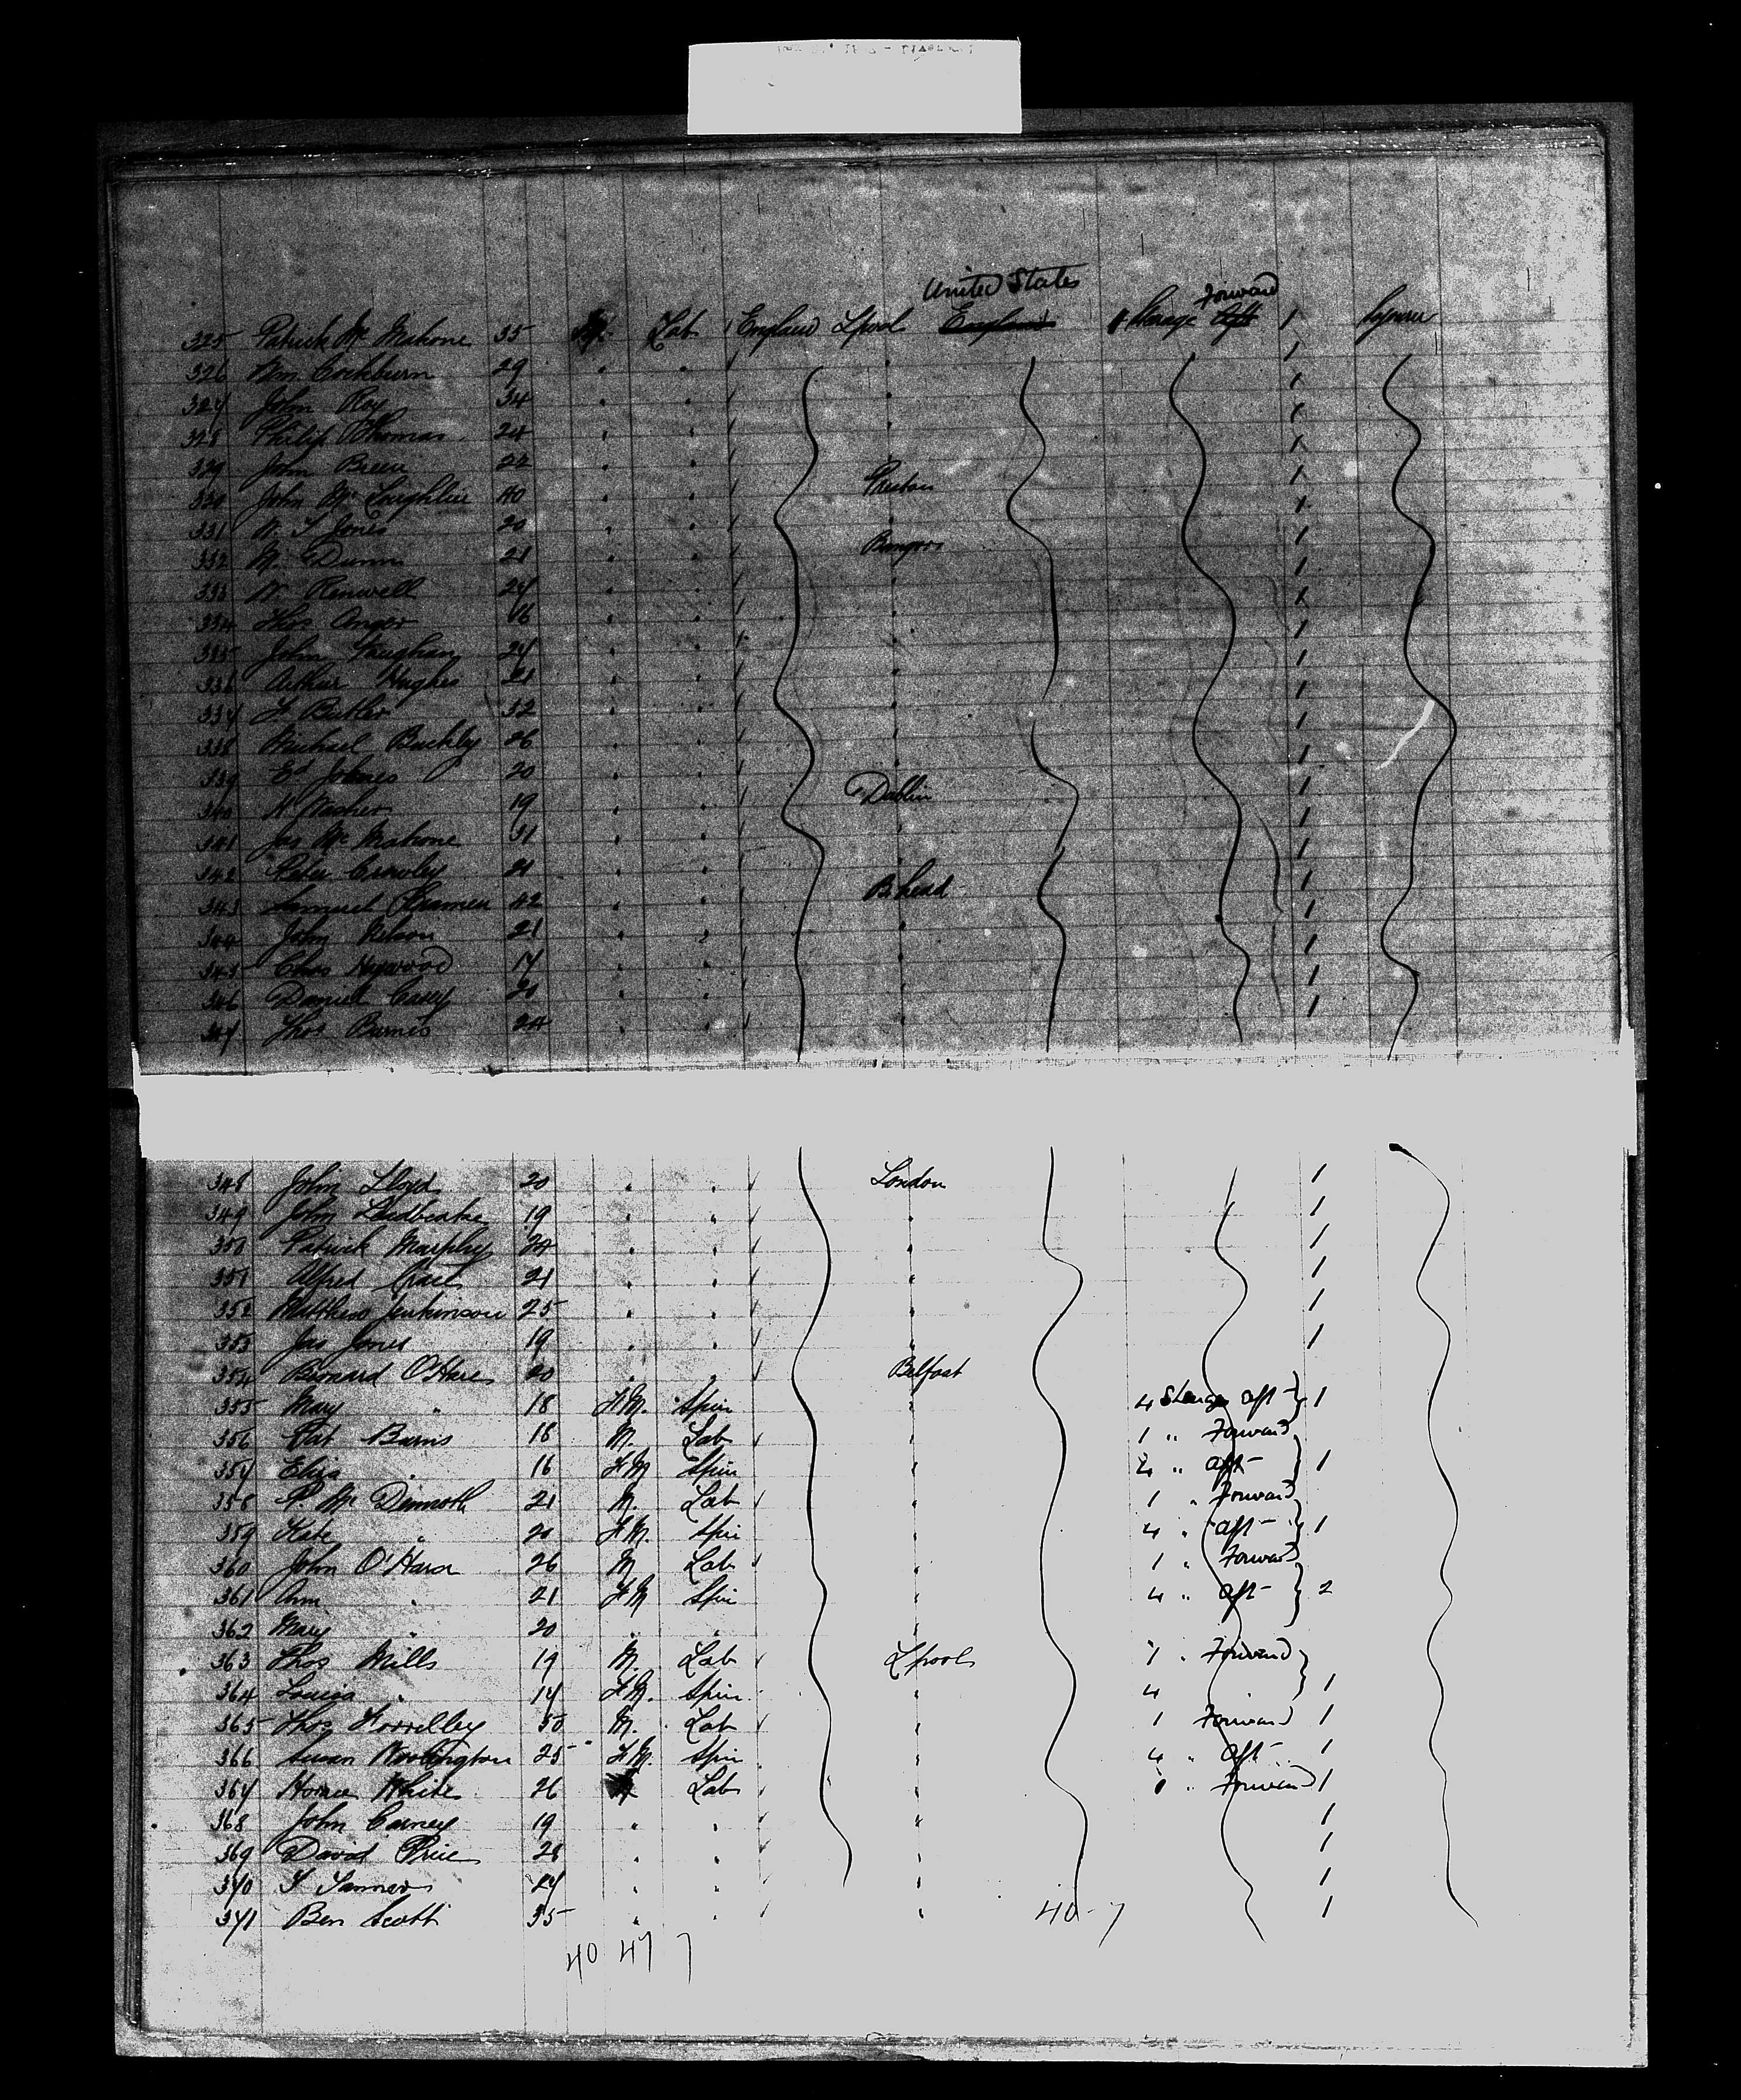 United States
Forward
325 Patrick Mc Mahone 35 M. Lab England Lpool England Sterage Aft 1 Sojourn
326 Wm Cockburn 29 " " 1
327 John Roy 34 " " " 1
328 Philip Thomas 24 " " " 1
329 John Breen 22 " " 1
330 John Mc Loughlin 40 " " Preston 1
331 W. T. Jones 20 " " 1
332 M. Dunn 21 " " Bangor 1
333 W Renwell 27 " " " 1
334 Thos Angor 16 " " " 1
335 John Vaughan 27 " " " 1
336 Arthur Hughes 21 " " " 1
337 F Butler 32 " " " 1
338 Michael Buckley 26 " " " 1
339 Ed Johnes 20 " " 1
340 19 " " Dublin 1
341 Jas Mc Mahone 31 " " " 1
342 Peter Crowley 21 " " " 1
343 Samuel 42 " " B.head 1
344 John Nelson 21 " " " 1
345 Chas Heywood 17 " " " 1
346 Daniel Casey 20 " " " 1
347 Thos Burnes 24 " " "
348 John Lloyd 20 " " London 1
349 John Leadbeater 19 " " " 1
350 Patrick Murphy 24 " " " 1
351 Alfred 21 " " " 1
352 Matthew Jenkinson 25 " " " 1
353 Jas Jones 19 " " " 1
354 Bernard O'Hare 20 " " Belfast
355 Mary " 18 F.M. Spin " 4 Sterage aft 1
356 Pat Barns 18 M. Lab " 1 " Forward
357 Eliza " 16 F.M Spin " 4 " aft 1
358 P. Mc Dinmoth 21 M. Lab " 1 " Forward
359 Kate " 20 F.M. Spin " 4 " aft 1
360 John O'Hara 26 M Lab " 1 " Forward
361 Ann " 21 F.M Spin " 4 " aft 2
362 Mary " 20 " " "
363 Thos Mills 19 M. Lab Lpool 1 " Forward
364 Louisa " 17 F.M. Spin " 4 " 1
365 Thos 50 M. Lab " 1 Forward 1
366 Susan 25 F.M. Spin " 4 " aft 1
367 Horace White 26 M Lab " 1 " Forward 1
368 John Carney 19 " " " 1
369 David Price 28 " " " 1
370 T Tanner 27 " " " 1
371 Ben Scott 35 " " " 40-7 1
40 47 7